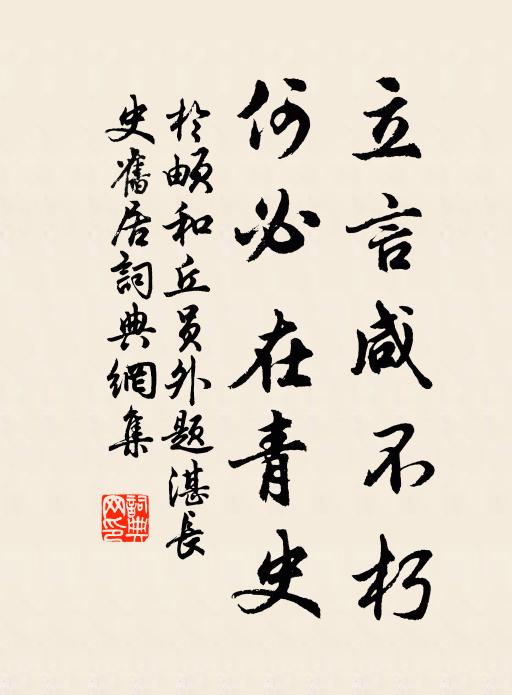 立言咸不朽
何必在青史
於頔和丘员外题湛長
史舊居詞典網集
詞典網印